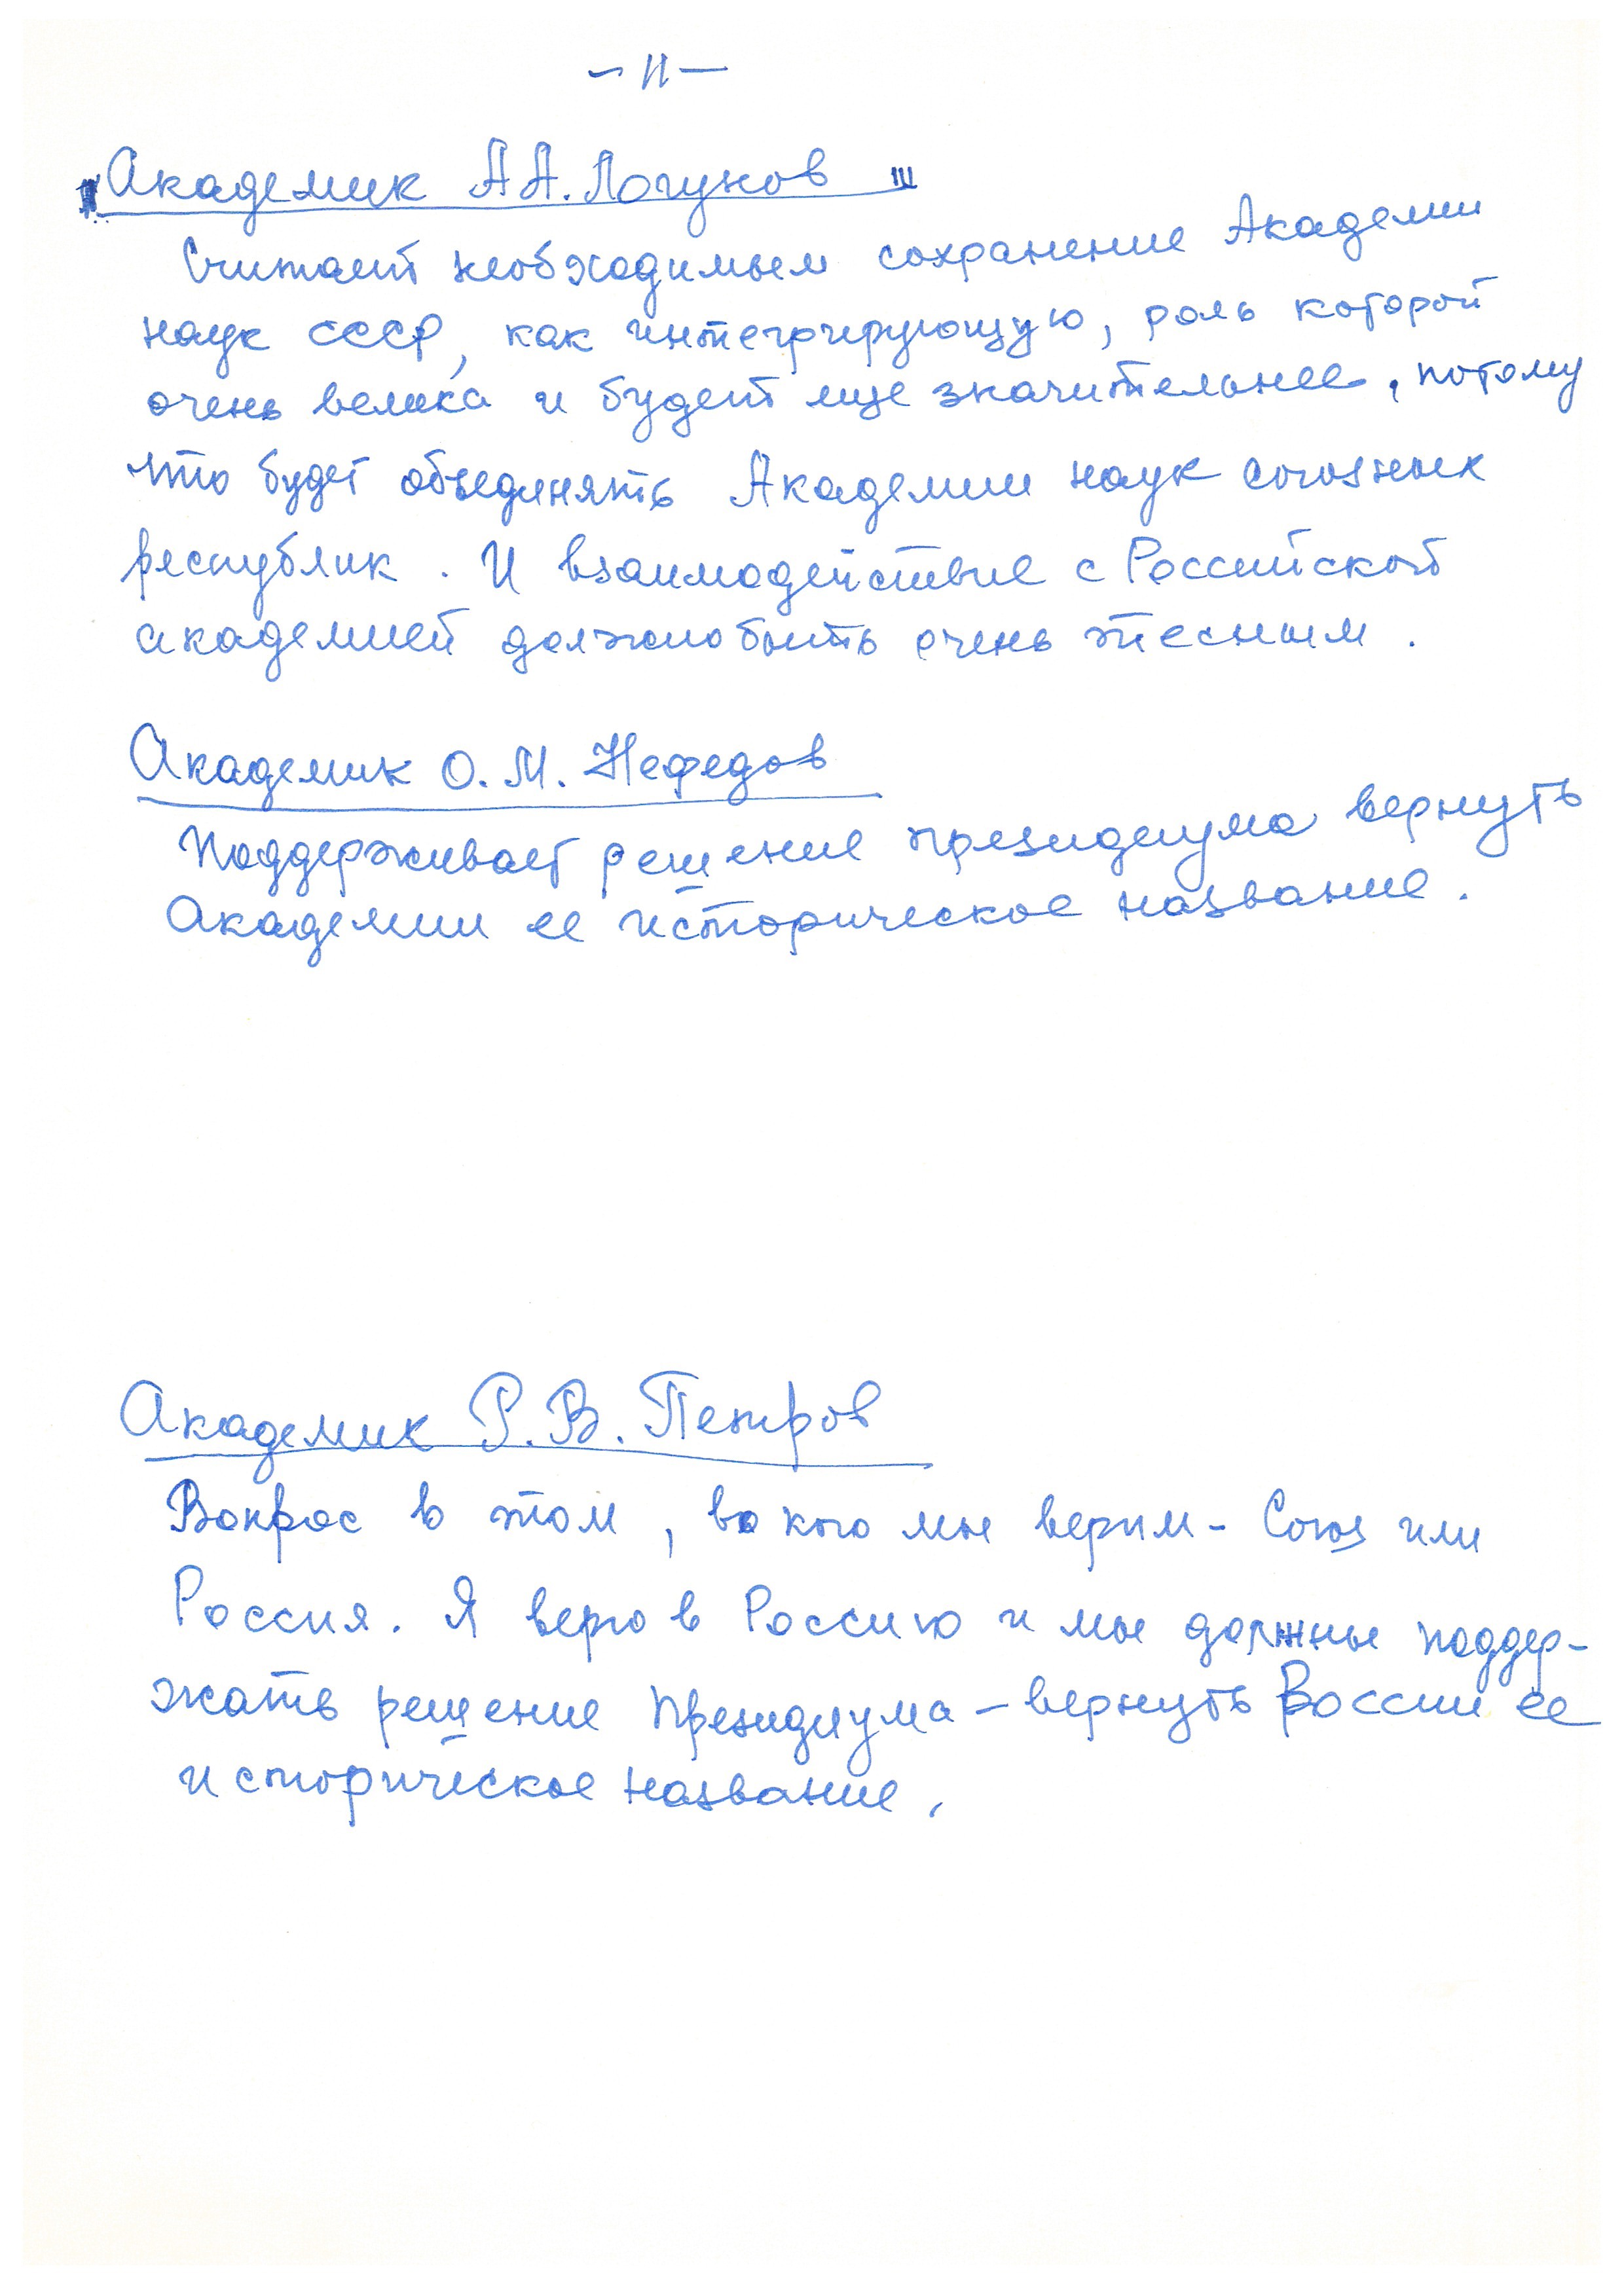 - 11 -
Академик А А. Логунов
Считает необходимым сохранение Академии
наук СССР, как интегрирующую, роль которой
очень велика и будет еще значительнее, потому
что будет объединять Академии наук союзных
республик. И взаимодействие с Российской
академией должно быть очень тесным.
Академик О. М. Нефедов
Поддерживает решение президиума вернуть
Академии ее историческое название.
Академик Р. В. Петров
Вопрос в том, во кого мы верим - Союз или
Россия. Я верю в Россию и мы должны поддер-
жать решение Президиума - вернуть России ее
историческое название.